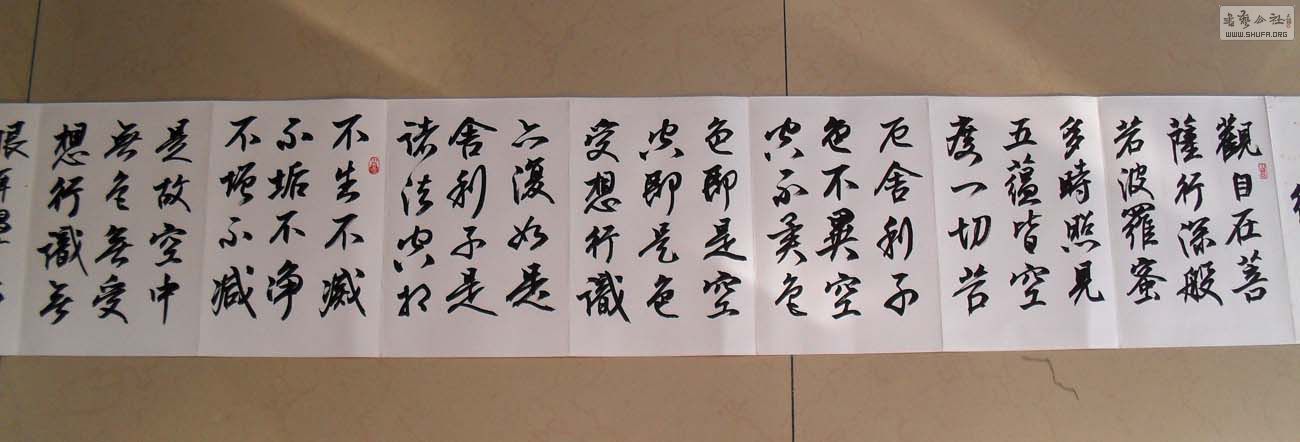 觀自在菩
薩行深般
若波羅蜜
多時照見
五蘊皆空
度一切苦
厄舍利子
色不異空
空不異色
色即是空
空即是色
受想行識
亦復如是
舍利子是
諸法空相
不生不滅
不垢不净
不增不减
是故空中
無色無受
想行識無
眼耳鼻
書藝公社
WWW.SHUFA.ORG